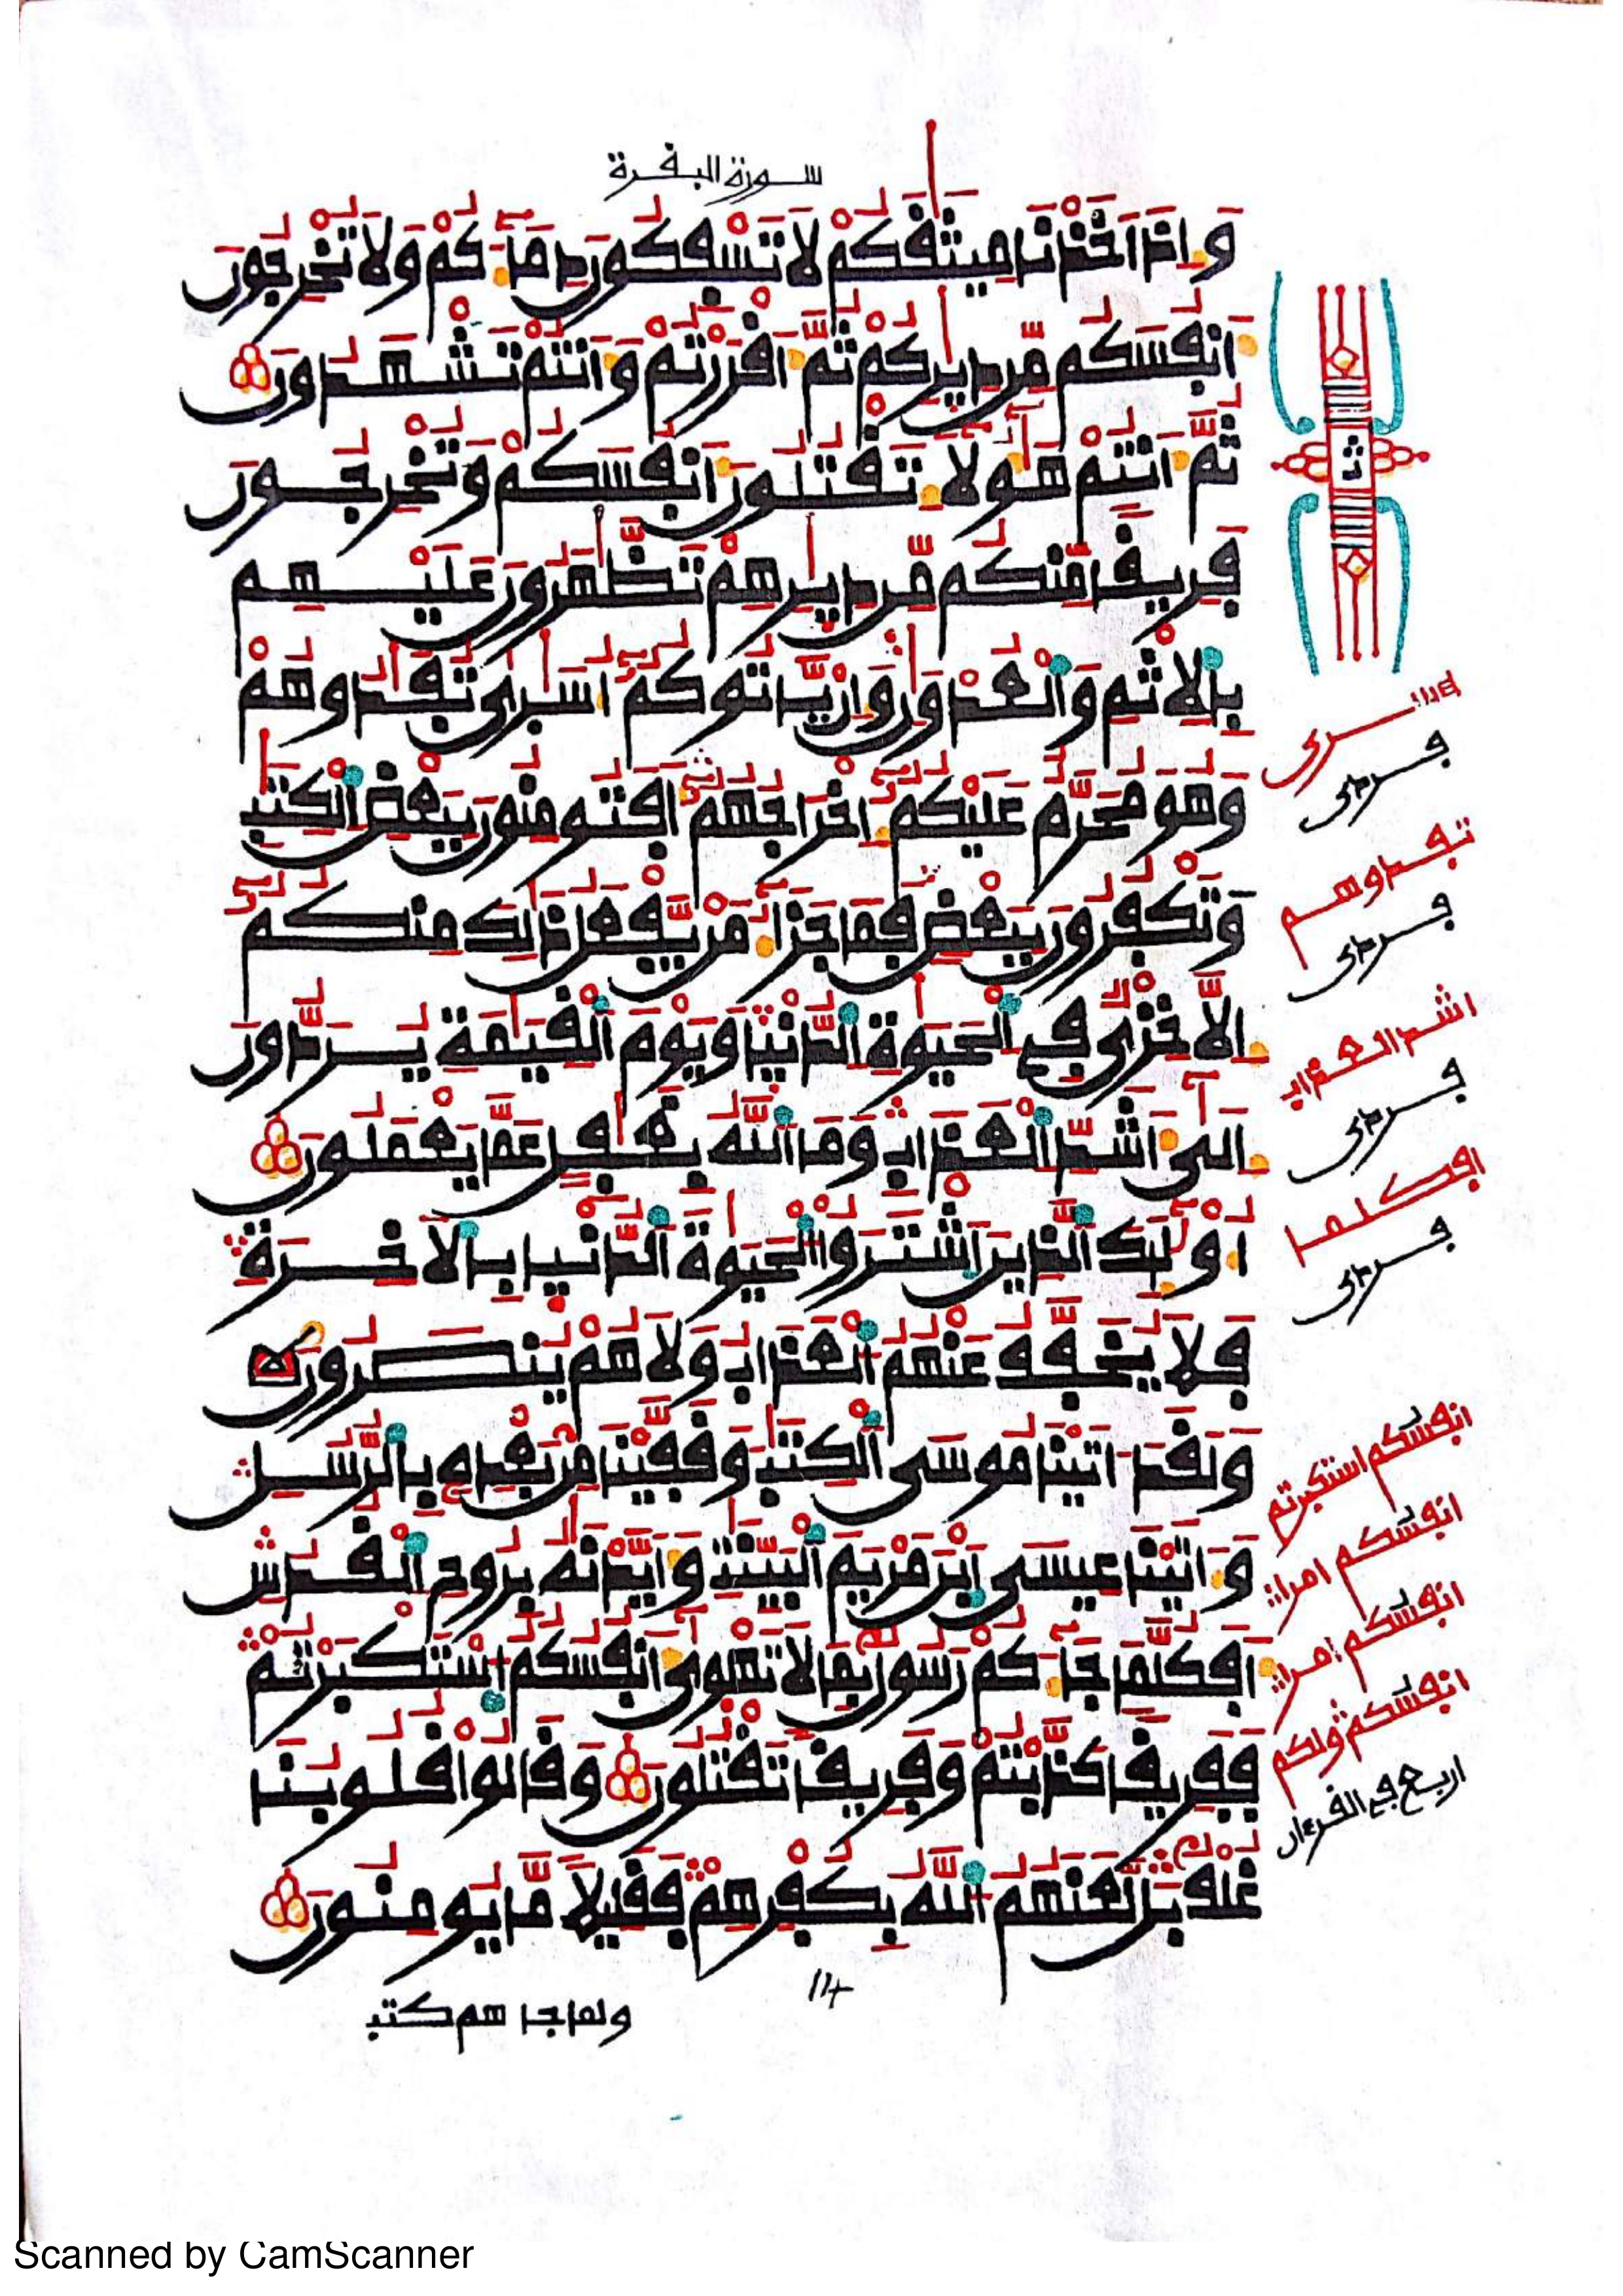 سورة البقرة
وَإِذَ اَخَذْنَا مِيثَٰقَكُمْ لَا تَسْفِكُونَ دِمَآءَكُمْ وَلَا تُخْرِجُونَ
أَنفُسَكُم مِّن دِيٰرِكُمْ ثُمَّ أَقْرَرْتُمْ وَأَنتُمْ تَشْهَدُونَ
ثُمَّ أَنتُمْ هَٰؤُلَآءِ تَقْتُلُونَ أَنفُسَكُمْ وَتُخْرِجُونَ
فَرِيقًا مِّنكُم مِّن دِيٰرِهِمْ تَظَّٰهَرُونَ عَلَيْهِم
بِالِاثْمِ وَالْعُدْوَٰنِ وَإِنْ يَّاتُوكُمُۥٓ أُسَٰرَىٰ تُفَٰدُوهُمْ
وَهُوَ مُحَرَّمٌ عَلَيْكُمُۥٓ إِخْرَاجُهُمُۥٓ أَفَتُومِنُونَ بِبَعْضِ الْكِتَٰبِ
وَتَكْفُرُونَ بِبَعْضٍ فَمَا جَزَآءُ مَنْ يَّفْعَلُ ذَٰلِكَ مِنكُمُۥٓ
إِلَّا خِزْىٌ فِى الْحَيَوٰةِ الدُّنْيَا وَيَوْمَ الْقِيَٰمَةِ يُرَدُّونَ
إِلَىٰٓ أَشَدِّ الْعَذَابِ وَمَا اللَّهُ بِغَٰفِلٍ عَمَّا يَعْمَلُونَ
أُوْلَٰٓئِكَ الَّذِينَ اَشْتَرَوُاْ الْحَيَوٰةَ الدُّنْيَا بِالَاخِرَةِ
فَلَا يُخَفَّفُ عَنْهُمُ الْعَذَابُ وَلَا هُمْ يُنصَرُونَ
وَلَقَدَ اٰتَيْنَا مُوسَى الْكِتَٰبَ وَقَفَّيْنَا مِنۢ بَعْدِهِۦ بِالرُّسُلِ
وَءَاتَيْنَا عِيسَى اَبْنَ مَرْيَمَ الْبَيِّنَٰتِ وَأَيَّدْنَٰهُ بِرُوحِ الْقُدُسِ
أَفَكُلَّمَا جَآءَكُمْ رَسُولٌۢ بِمَا لَا تَهْوَىٰٓ أَنفُسُكُمُ اُسْتَكْبَرْتُمْ
فَفَرِيقًا كَذَّبْتُمْ وَفَرِيقًا تَقْتُلُونَ وَقَالُواْ قُلُوبُنَا
غُلْفٌۢ بَل لَّعَنَهُمُ اللَّهُ بِكُفْرِهِمْ فَقَلِيلًا مَّا يُومِنُونَ
ث
فردى
تفدوهم
فردى
اشد العذاب
فردى
افكلما
فردى
انفسكم استكبرتم
انفسكم امرا
انفسكم امرا
اربع في القرءان
ولما جاهم كتب
Scanned by CamScanner